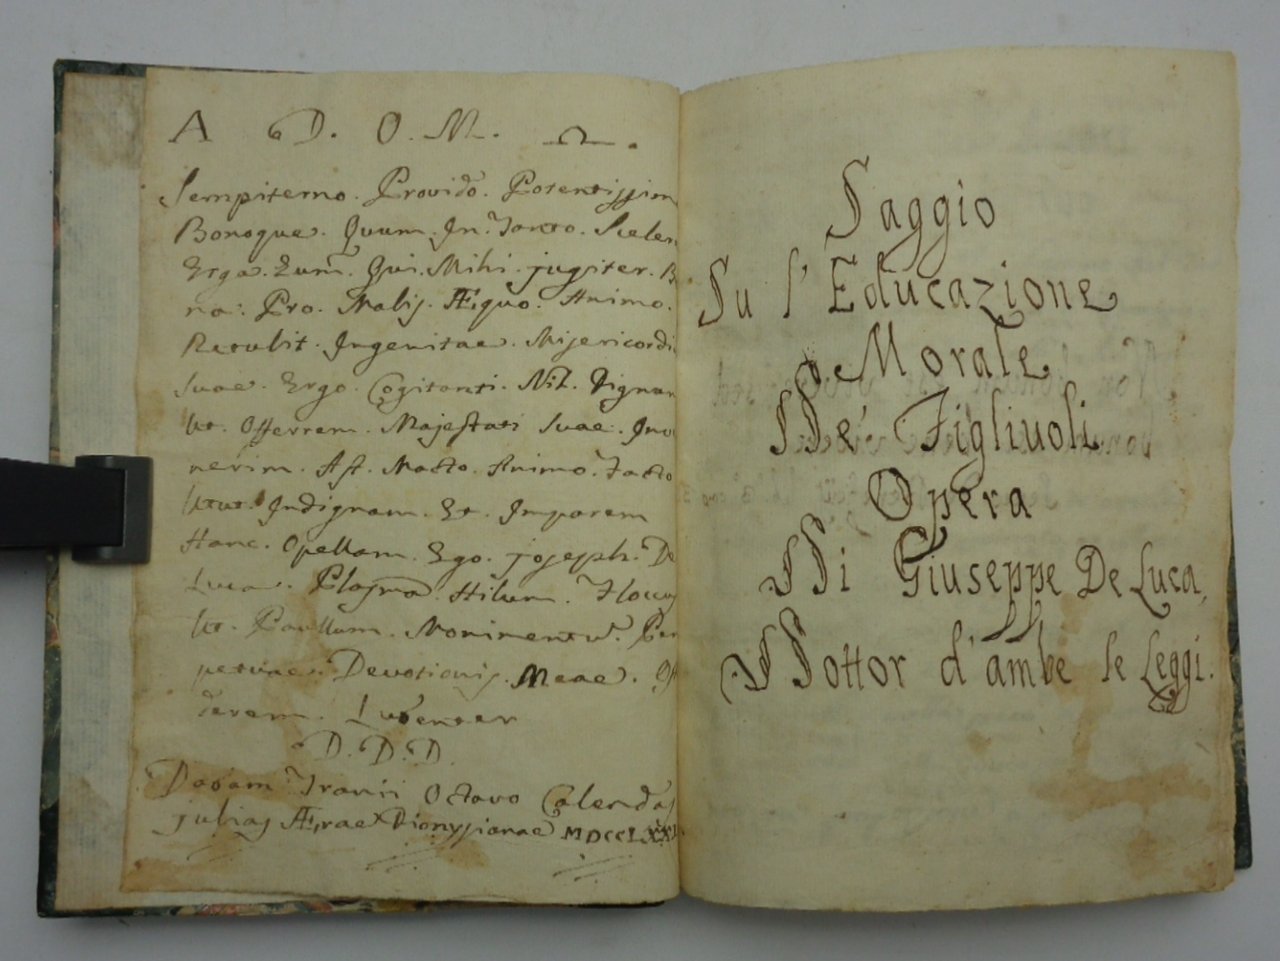 A D. O. M. Ω.
Sempiterno. Provido. Potentissim
Bonoque. Quum. In. Tanto. Sceler
Erga. Eum. Qui. Mihi. jugiter. B
na. Pro. Malis. Æquo. Animo.
Retulit. Ingenitae. Misericordi
Suae. Ergo. Cogitanti. Nil. Dignum
Ut. Offerrem. Majestati Suae. Inve
nerim. Ast. Macto. Animo. Facto
Utut. Indignam. Et. Imparem
Hanc. Opellam. Ego. joseph. De
Luca. Plasma. Hilum. Floccus
Ut. Paullum. Monimentū. Per
petuae. Devotionis. Meae. Of
ferem. Lubenter
D. D. D.
Dabam Octavo Calendas
julias Æræ Dionysianae MDCCLXXI
Saggio
Su l'Educazione
Morale
De' Figliuoli
Opera
Di Giuseppe De Luca,
Dottor d'ambe le Leggi.